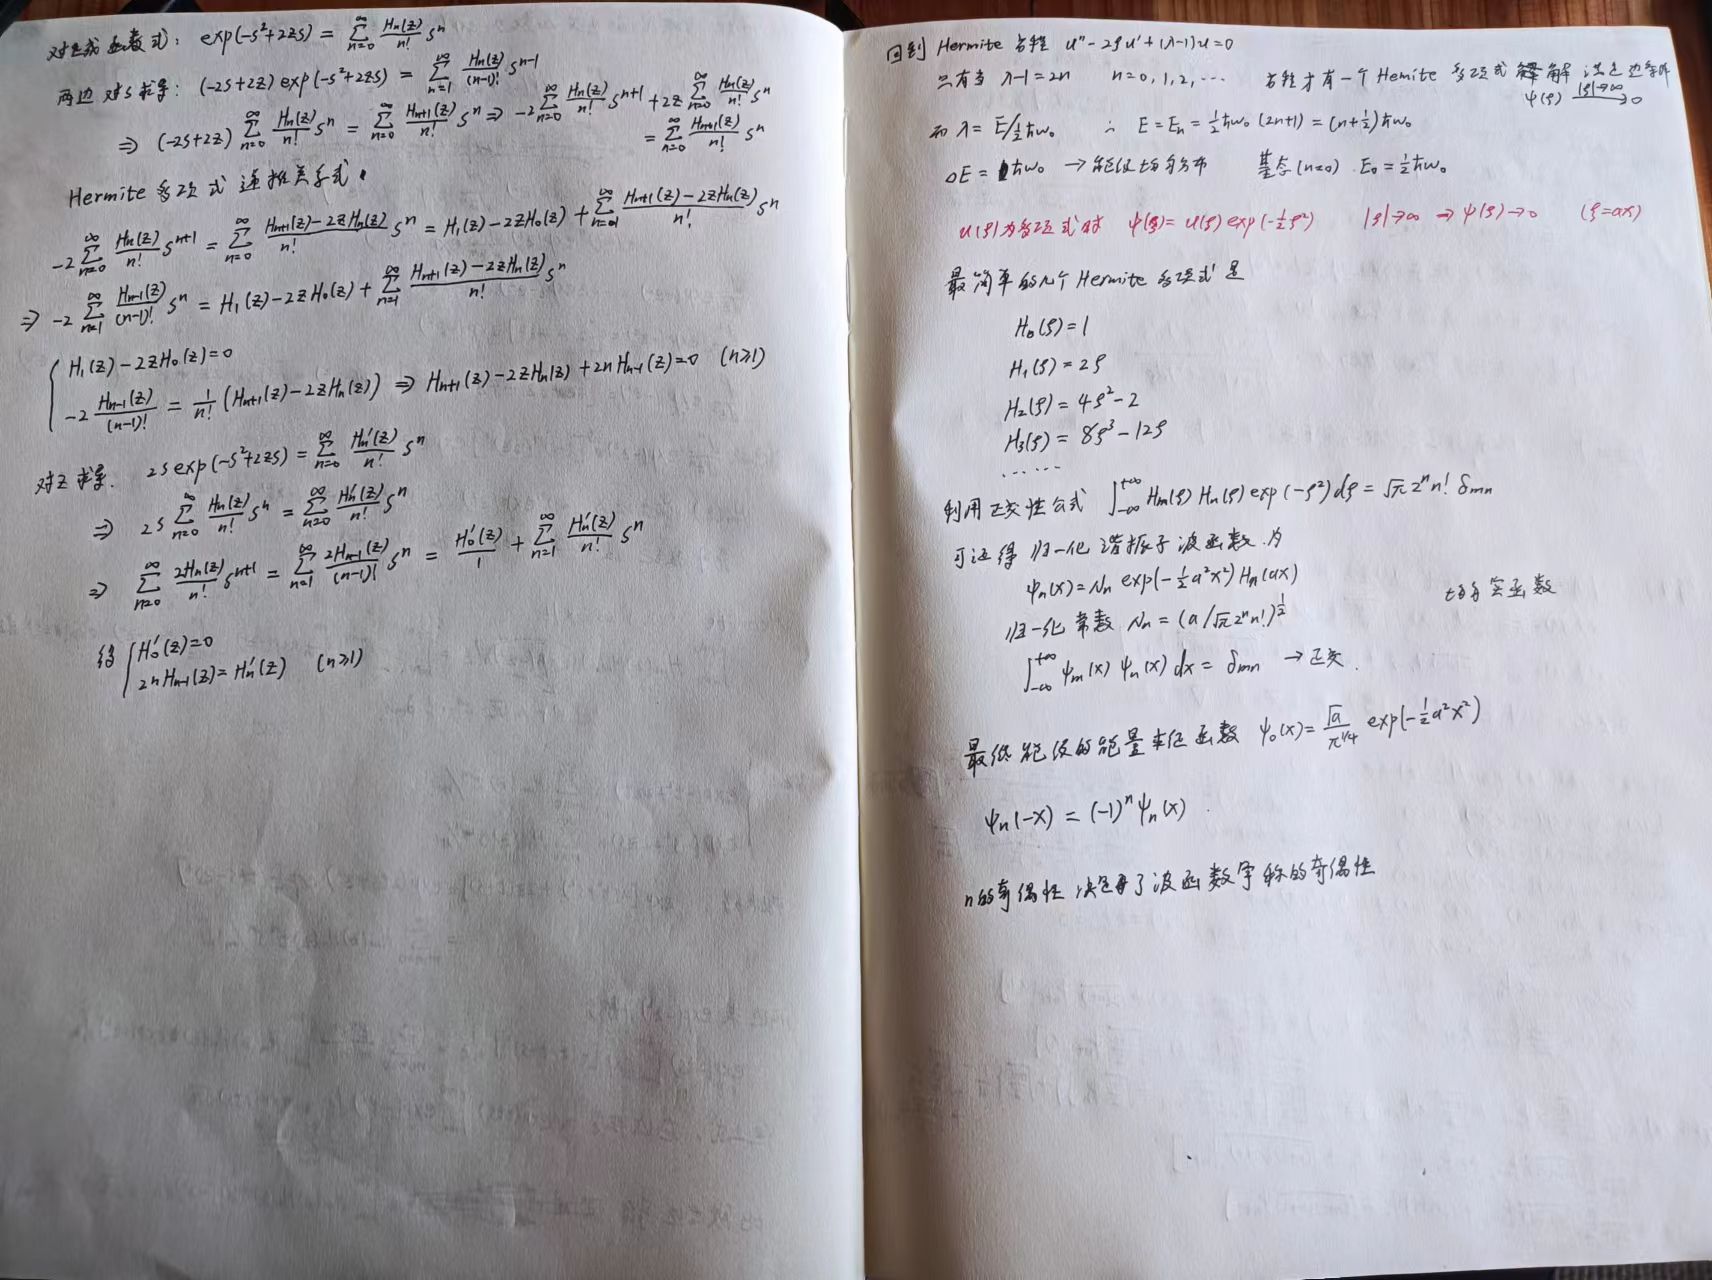 对生成函数式: exp(-s²+2zs) = ∑_{n=0}^{∞} Hn(z)/n! sⁿ
两边对s求导: (-2s+2z) exp(-s²+2zs) = ∑_{n=1}^{∞} Hn(z)/(n-1)! s^{n-1}
⇒ (-2s+2z) ∑_{n=0}^{∞} Hn(z)/n! sⁿ = ∑_{n=0}^{∞} Hn+1(z)/n! sⁿ ⇒ -2∑_{n=0}^{∞} Hn(z)/n! s^{n+1} + 2z ∑_{n=0}^{∞} Hn(z)/n! sⁿ
= ∑_{n=0}^{∞} Hn+1(z)/n! sⁿ
Hermite多项式递推关系式.
-2 ∑_{n=0}^{∞} Hn(z)/n! s^{n+1} = ∑_{n=0}^{∞} (Hn+1(z)-2zHn(z))/n! sⁿ = H₁(z)-2zH₀(z) + ∑_{n=1}^{∞} (Hn+1(z)-2zHn(z))/n! sⁿ
⇒ -2 ∑_{n=1}^{∞} Hn-1(z)/(n-1)! sⁿ = H₁(z)-2zH₀(z) + ∑_{n=1}^{∞} (Hn+1(z)-2zHn(z))/n! sⁿ
{ H₁(z)-2zH₀(z)=0
-2 Hn-1(z)/(n-1)! = 1/n! (Hn+1(z)-2zHn(z)) ⇒ Hn+1(z)-2zHn(z)+2nHn-1(z)=0 (n≥1)
对z求导. 2s exp(-s²+2zs) = ∑_{n=0}^{∞} Hn'(z)/n! sⁿ
⇒ 2s ∑_{n=0}^{∞} Hn(z)/n! sⁿ = ∑_{n=0}^{∞} Hn'(z)/n! sⁿ
⇒ ∑_{n=0}^{∞} 2Hn(z)/n! s^{n+1} = ∑_{n=1}^{∞} 2Hn-1(z)/(n-1)! sⁿ = H₀'(z)/1 + ∑_{n=1}^{∞} Hn'(z)/n! sⁿ
得 { H₀'(z)=0
2nHn-1(z)=Hn'(z) (n≥1)
回到 Hermite 方程 u''-2ξu'+(λ-1)u=0
只有当 λ-1=2n n=0,1,2,… 方程才有一个Hemite多项式解 满足边条件
ψ(ξ) |ξ|→∞ → 0
而 λ=E/½ħω₀ ∴ E=En=½ħω₀(2n+1)=(n+½)ħω₀
ΔE=ħω₀ → 能级均匀分布 基态(n=0). E₀=½ħω₀
u(ξ)为多项式时 ψ(ξ)=u(ξ)exp(-½ξ²) |ξ|→∞ → ψ(ξ)→0 (ξ=ax)
最简单的几个Hermite多项式是
H₀(ξ)=1
H₁(ξ)=2ξ
H₂(ξ)=4ξ²-2
H₃(ξ)=8ξ³-12ξ
……
利用正交性公式 ∫_{-∞}^{+∞} Hm(ξ)Hn(ξ)exp(-ξ²)dξ=√π2ⁿn! δmn
可证得 归一化谐振子波函数.为
ψn(x)=Nn exp(-½a²x²)Hn(ax) 均为实函数
归一化常数 Nn=(a/√π2ⁿn!)^{½}
∫_{-∞}^{+∞} ψm(x)ψn(x)dx=δmn → 正交.
最低能级的能量本征函数 ψ₀(x)=√a/π^{1/4} exp(-½a²x²)
ψn(-x)=(-1)ⁿψn(x).
n的奇偶性决定了波函数宇称的奇偶性